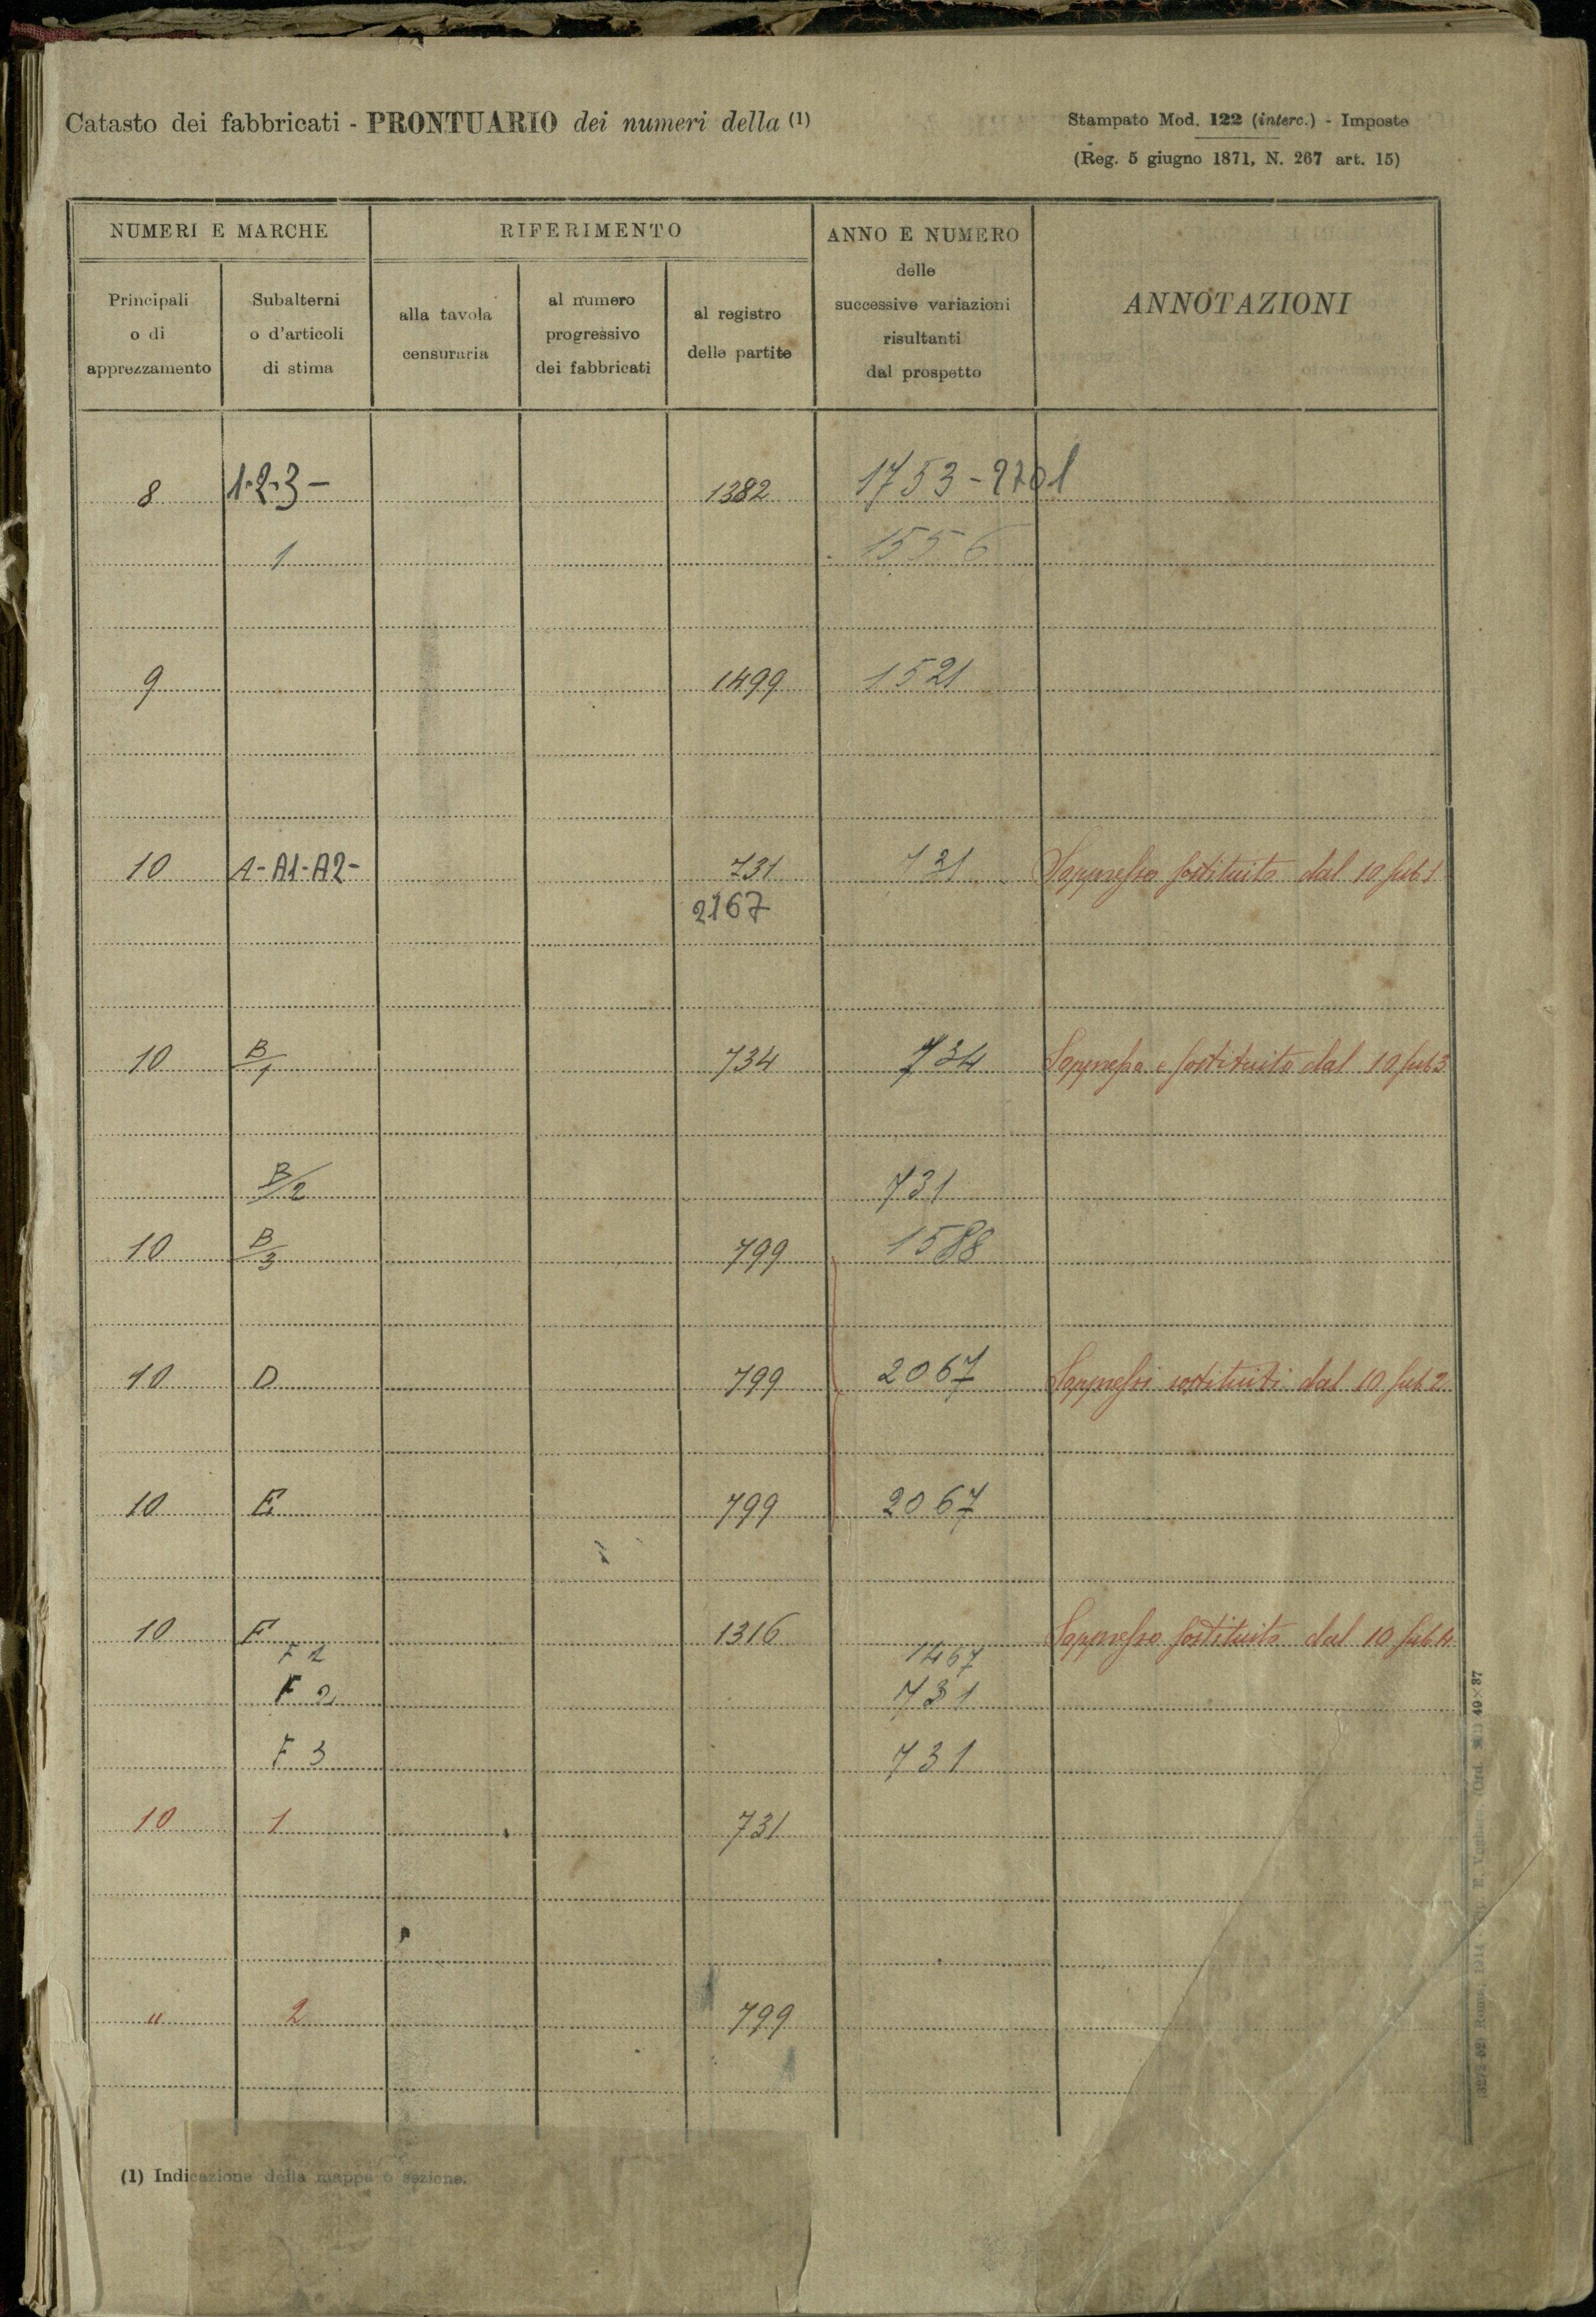 Catasto dei fabbricati - PRONTUARIO dei numeri della (1)
Stampato Mod. 122 (interc.) - Imposte
(Reg. 5 giugno 1871, N. 267 art. 15)
NUMERI E MARCHE
RIFERIMENTO
ANNO E NUMERO
delle
successive variazioni
risultanti
dal prospetto
ANNOTAZIONI
Principali
o di
apprezzamento
Subalterni
o d'articoli
di stima
alla tavola
censuraria
al numero
progressivo
dei fabbricati
al registro
delle partite
8 1-2-3- 1382 1753-2701
1 1556
9 1499 1521
10 A-A1-A2- 731 731 Soppresso sostituito dal 10 sub 1
2167
10 B/1 734 734 Soppresso e sostituito dal 10 sub 3
B/2 731
10 B/3 799 1588
10 D 799 2067 Soppressi sostituiti dal 10 sub 2
10 E 799 2067
10 F 1316 Soppresso sostituito dal 10 sub 4
F 2 1467
F 2 731
F 3 731
10 1 731
" 2 799
(1) Indicazione della mappa o sezione.
Roma, 1914 49×37